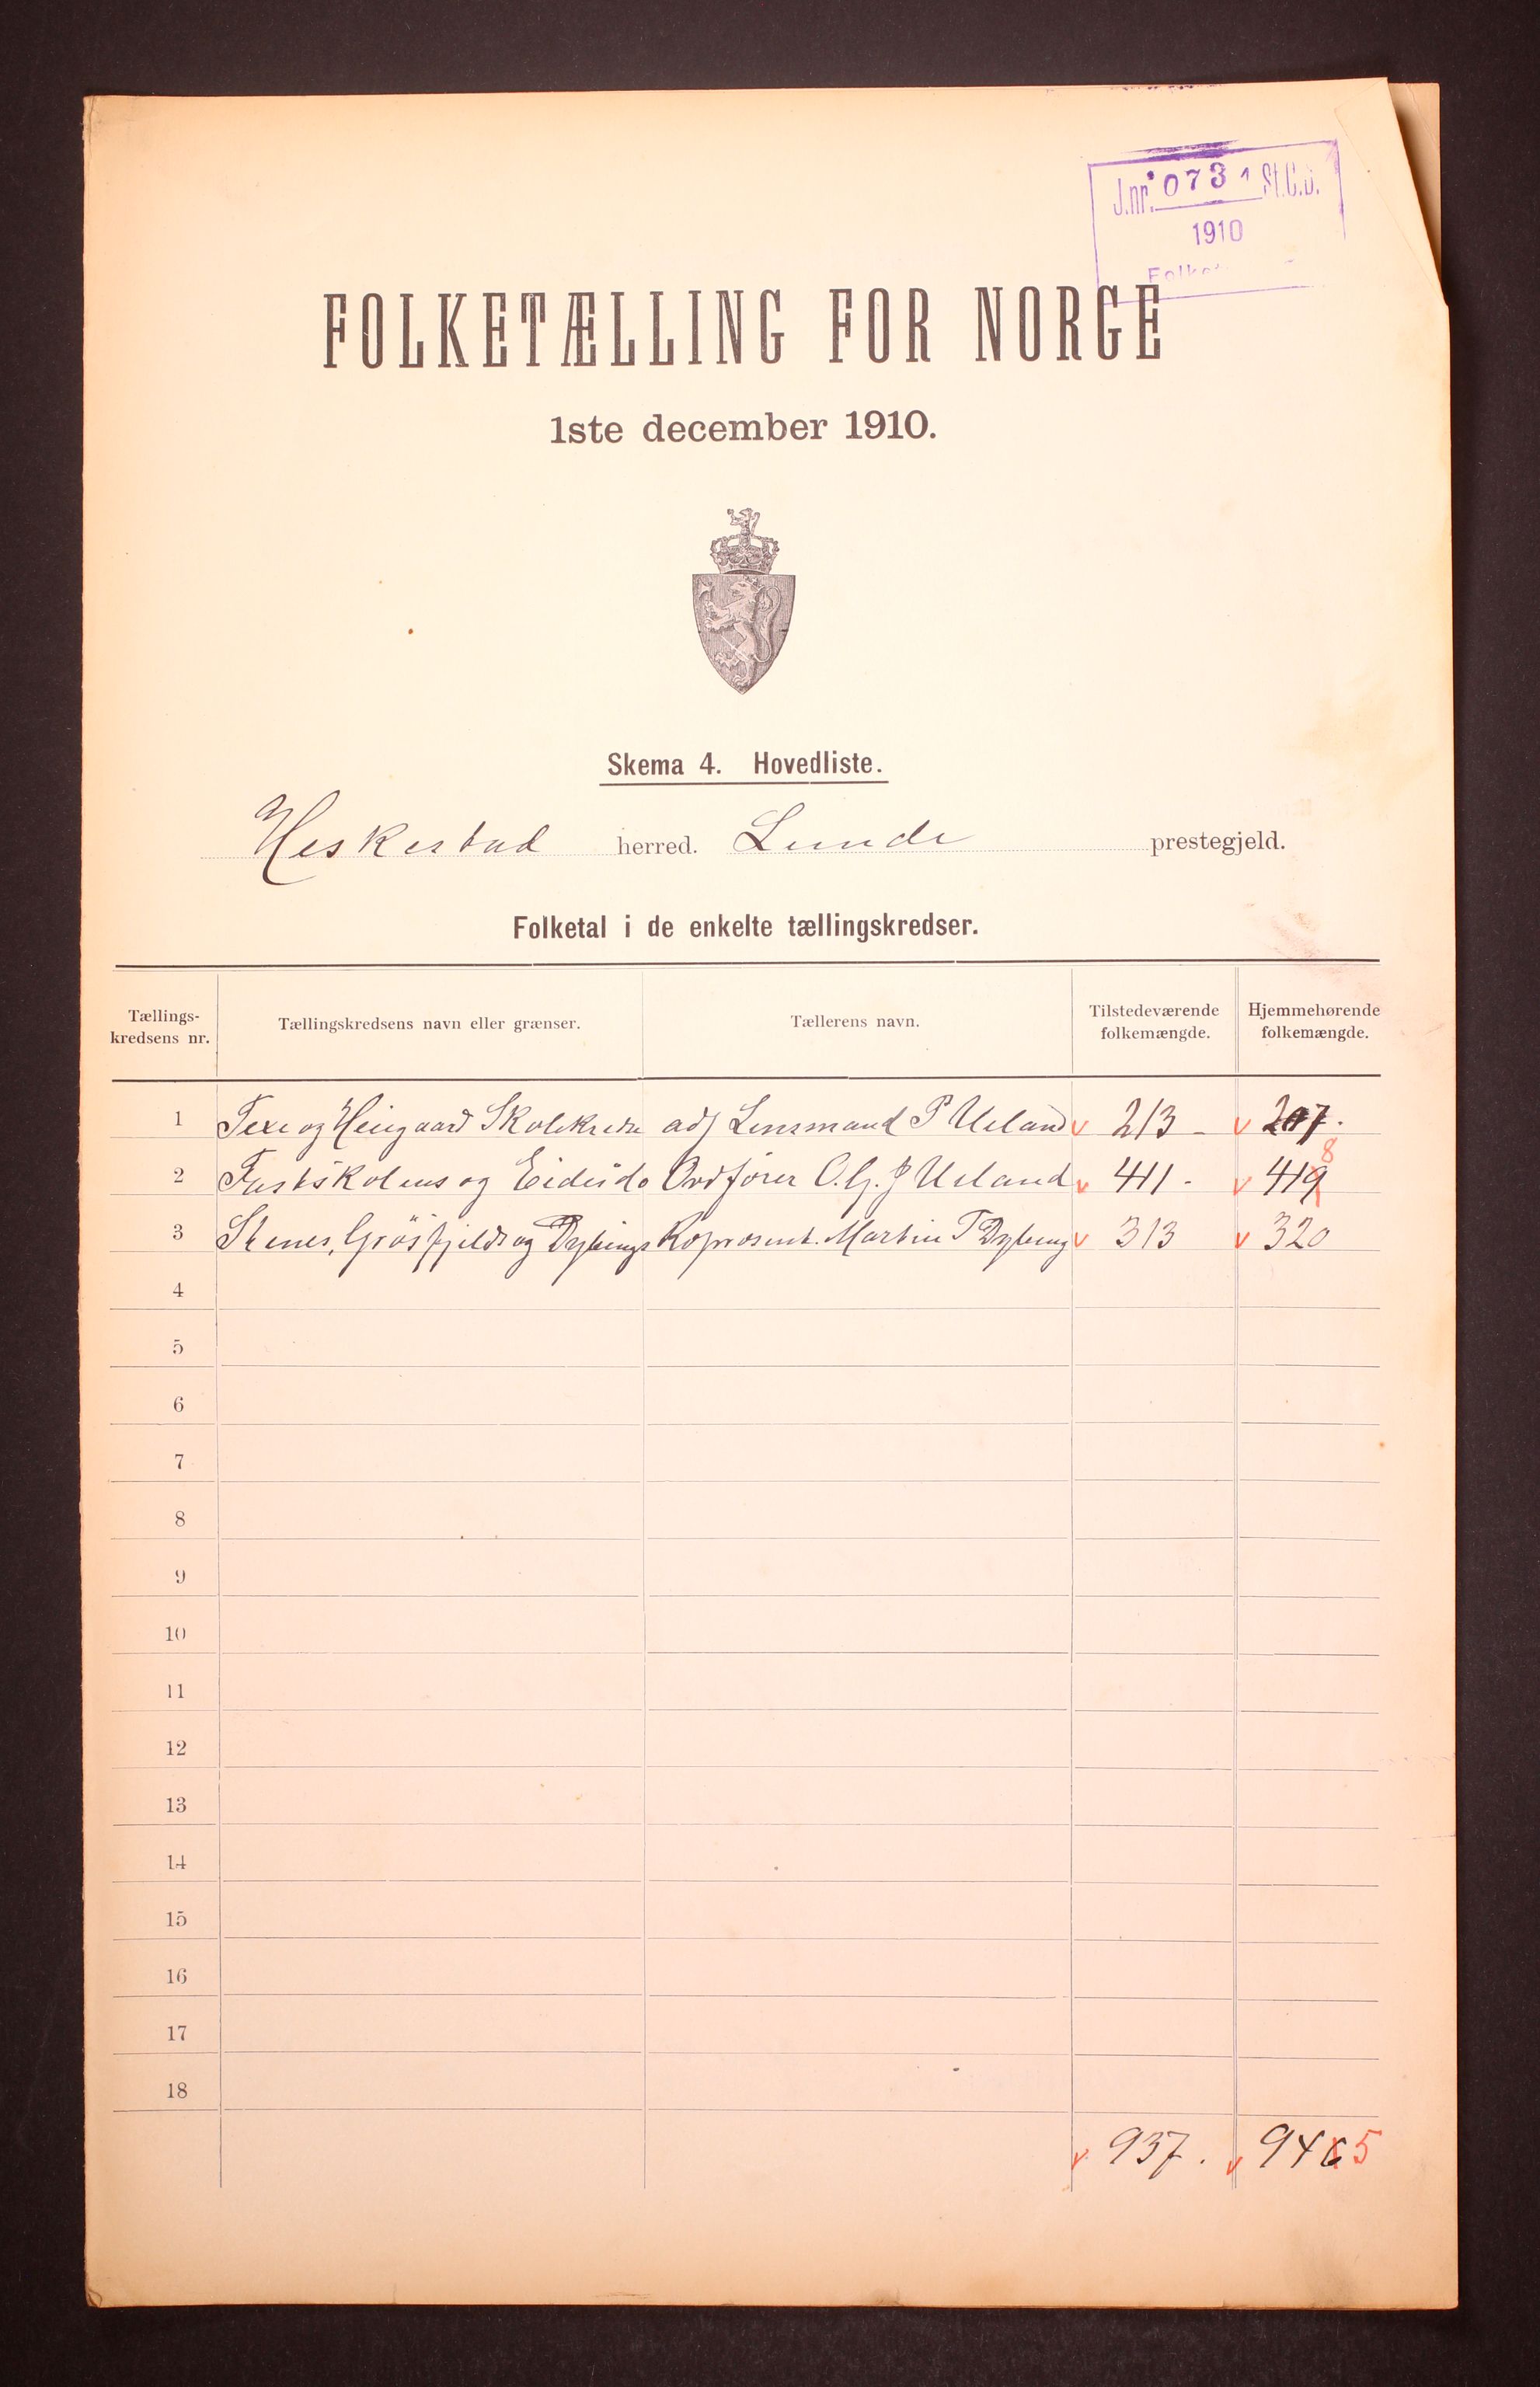 J.nr. 0731 St.C.B.
1910
FOLKETÆLLING FOR NORGE
1ste december 1910.
Skema 4. Hovedliste.
Heskestad herred. Lunde prestegjeld.
Folketal i de enkelte tællingskredser.
Tællings-kredsens nr. Tællingskredsens navn eller grænser. Tællerens navn. Tilstedeværende folkemængde. Hjemmehørende folkemængde.
1 og Skolekreds adj Lensmand P Ueland v 213 - v 207.
2 og Eides do Ordfører O. G. Ueland v 411 - v 419 8
3 Stenes, Grøsfjelds og Dybings Repræsent. Martin T Dybing v 313 v 320
4
5
6
7
8
9
10
11
12
13
14
15
16
17
18
v 937. v 946 5